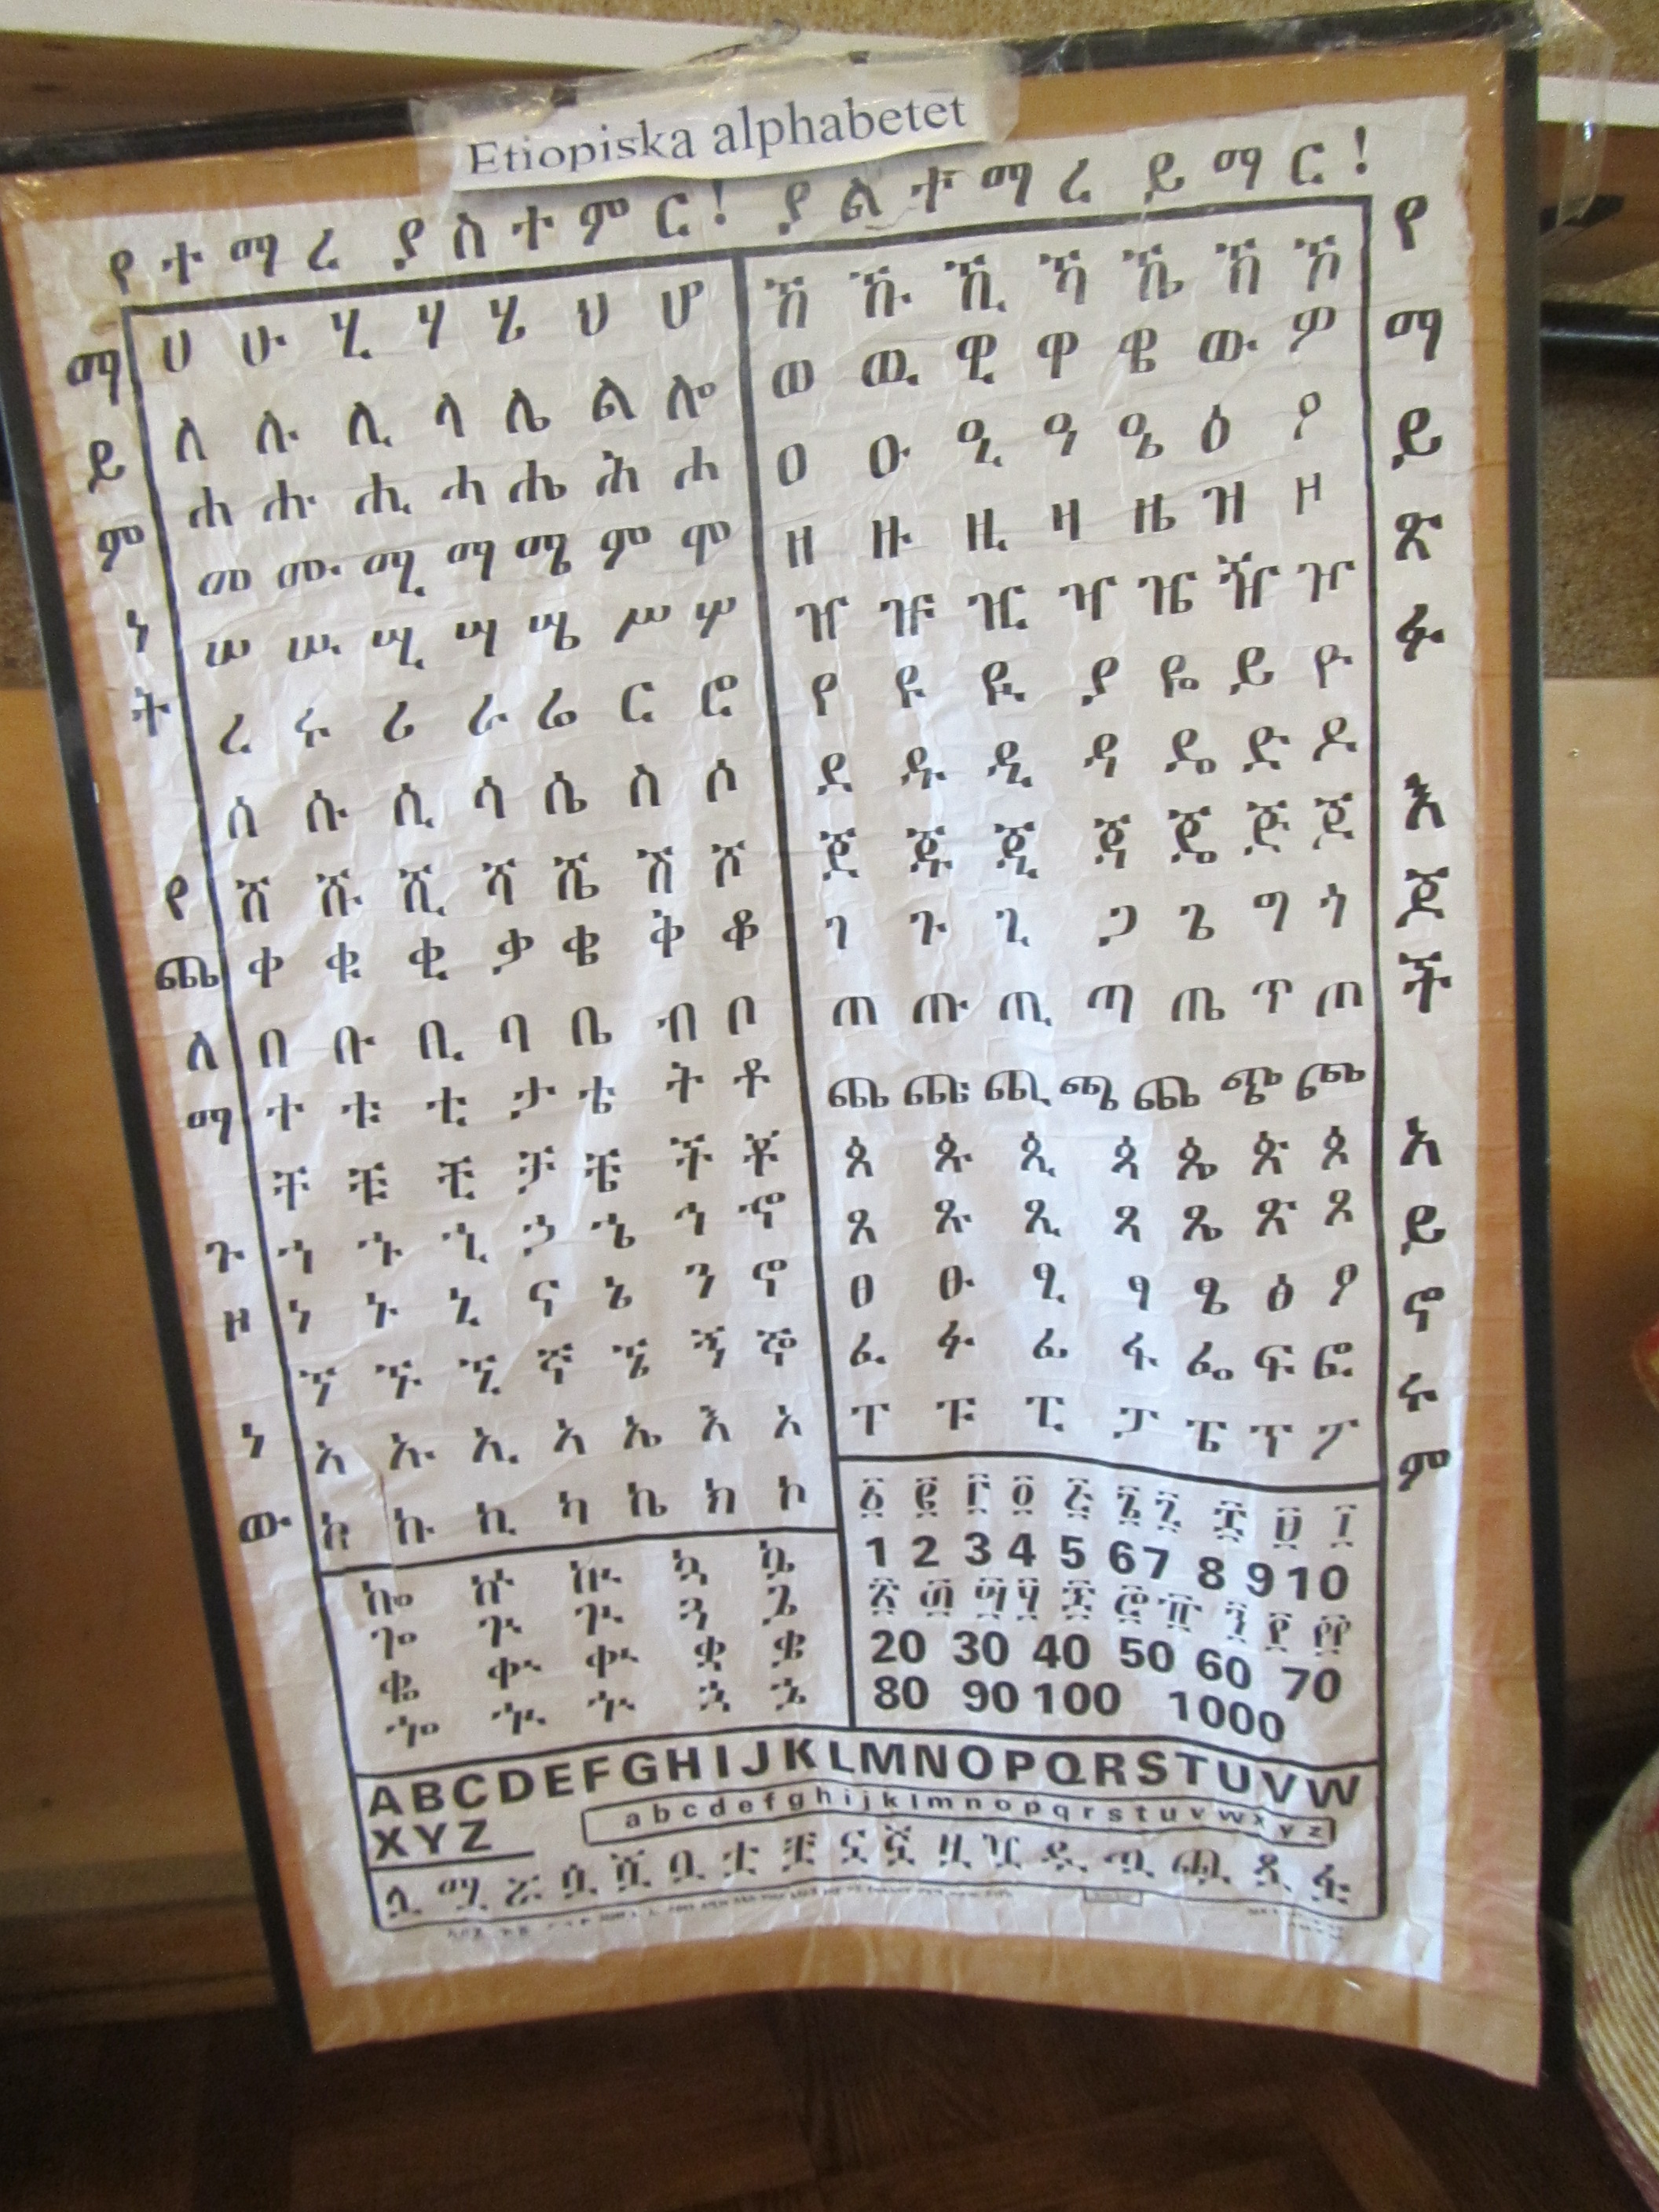 Etiopiska alphabetet
የተማረ ያስተምር! ያልተማረ ይማር!
ማይምነት የጨለማ ጉዞ ነው
የማይጽፉ እጆች አይኖሩም
ሀ ሁ ሂ ሃ ሄ ህ ሆ
ለ ሉ ሊ ላ ሌ ል ሎ
ሐ ሑ ሒ ሓ ሔ ሕ ሖ
መ ሙ ሚ ማ ሜ ም ሞ
ሠ ሡ ሢ ሣ ሤ ሥ ሦ
ረ ሩ ሪ ራ ሬ ር ሮ
ሰ ሱ ሲ ሳ ሴ ስ ሶ
ሸ ሹ ሺ ሻ ሼ ሽ ሾ
ቀ ቁ ቂ ቃ ቄ ቅ ቆ
በ ቡ ቢ ባ ቤ ብ ቦ
ተ ቱ ቲ ታ ቴ ት ቶ
ቸ ቹ ቺ ቻ ቼ ች ቾ
ኀ ኁ ኂ ኃ ኄ ኅ ኆ
ነ ኑ ኒ ና ኔ ን ኖ
ኘ ኙ ኚ ኛ ኜ ኝ ኞ
አ ኡ ኢ ኣ ኤ እ ኦ
ከ ኩ ኪ ካ ኬ ክ ኮ
ኸ ኹ ኺ ኻ ኼ ኽ ኾ
ወ ዉ ዊ ዋ ዌ ው ዎ
ዐ ዑ ዒ ዓ ዔ ዕ ዖ
ዘ ዙ ዚ ዛ ዜ ዝ ዞ
ዠ ዡ ዢ ዣ ዤ ዥ ዦ
የ ዩ ዪ ያ ዬ ይ ዮ
ደ ዱ ዲ ዳ ዴ ድ ዶ
ጀ ጁ ጂ ጃ ጄ ጅ ጆ
ገ ጉ ጊ ጋ ጌ ግ ጎ
ጠ ጡ ጢ ጣ ጤ ጥ ጦ
ጨ ጩ ጪ ጫ ጬ ጭ ጮ
ጰ ጱ ጲ ጳ ጴ ጵ ጶ
ጸ ጹ ጺ ጻ ጼ ጽ ጾ
ፀ ፁ ፂ ፃ ፄ ፅ ፆ
ፈ ፉ ፊ ፋ ፌ ፍ ፎ
ፐ ፑ ፒ ፓ ፔ ፕ ፖ
ኰ ኲ ኵ ኳ ኴ
ጐ ጒ ጕ ጓ ጔ
ቈ ቊ ቍ ቋ ቌ
ኈ ኊ ኍ ኋ ኌ
፩ ፪ ፫ ፬ ፭ ፮ ፯ ፰ ፱ ፲
1 2 3 4 5 6 7 8 9 10
፳ ፴ ፵ ፶ ፷ ፸ ፹ ፺ ፻ ፲፻
20 30 40 50 60 70
80 90 100 1000
ABCDEFGHIJKLMNOPQRSTUVW
XYZ
abcdefghijklmnopqrstuvwxyz
ሏ ሟ ሯ ሷ ሿ ቧ ቷ ቿ ኗ ኟ ዟ ዧ ዷ ጧ ጯ ጿ ፏ